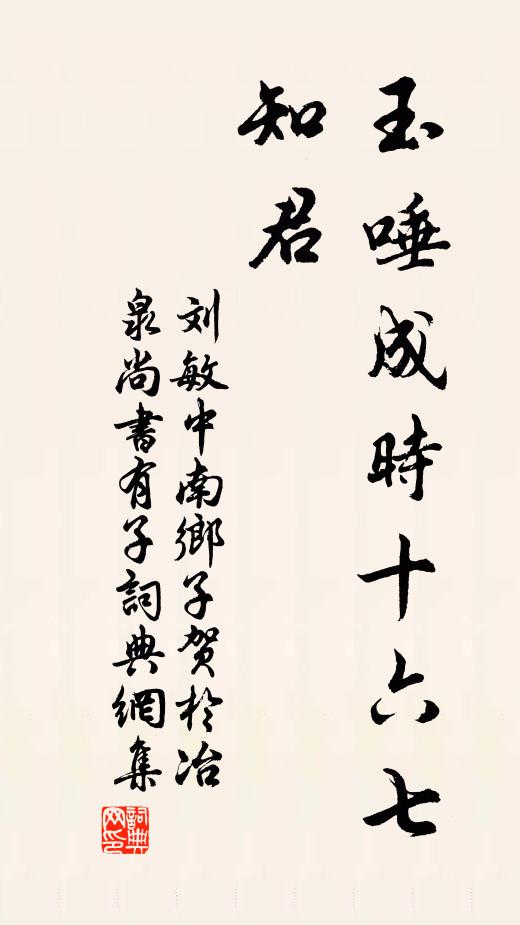 玉唾成時十六七
知君
刘敏中南鄉子賀於冶
泉尚書有子詞典網集
詞典網印